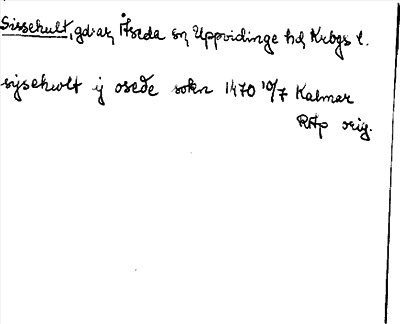 Sissehult, gdar, Åseda sn, Uppvidinge hd, Krbgs l.
sysehwlt ij osede sokn 1470 10/7 Kalmar
RAp orig.